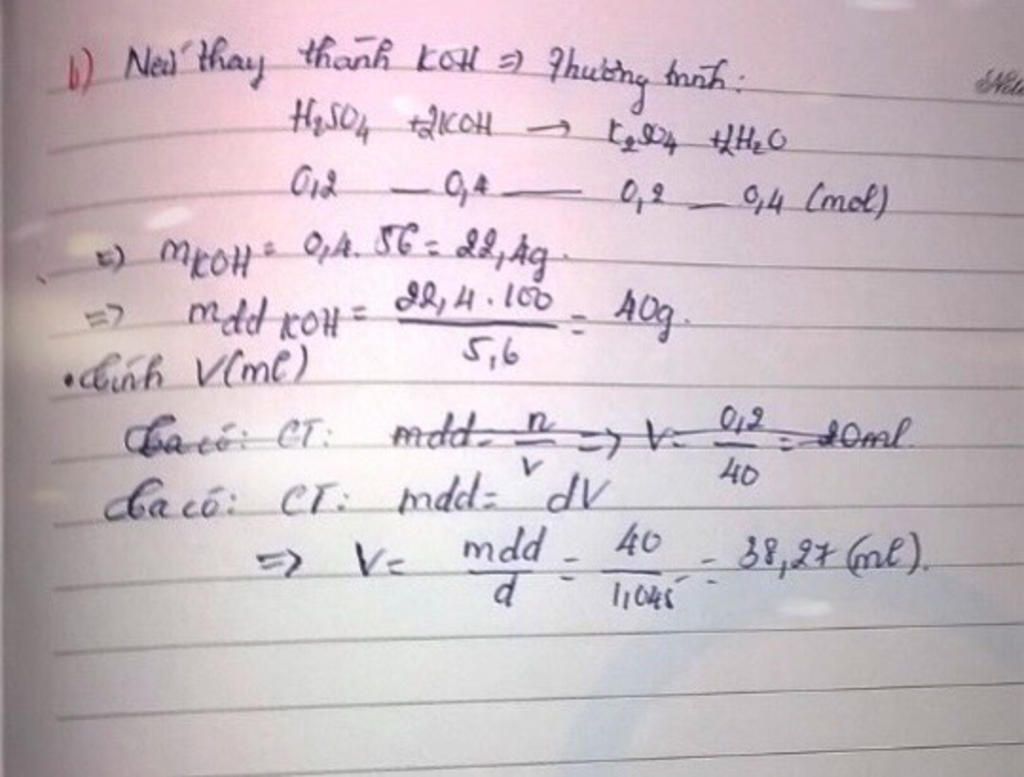 b) Nếu thay thành KOH => Phương trình:
H₂SO₄ + 2KOH → K₂SO₄ + 2H₂O
0,2 — 0,4 — 0,2 — 0,4 (mol)
=> mKOH = 0,4 . 56 = 22,4g.
=> mdd KOH = 22,4 . 100 / 5,6 = 40g.
• Tính V(ml)
Ta có: CT: mdd = n/V => V = 0,2/40 = 20ml
Ta có: CT: mdd = dV
=> V = mdd/d = 40/1,045 = 38,27 (ml).